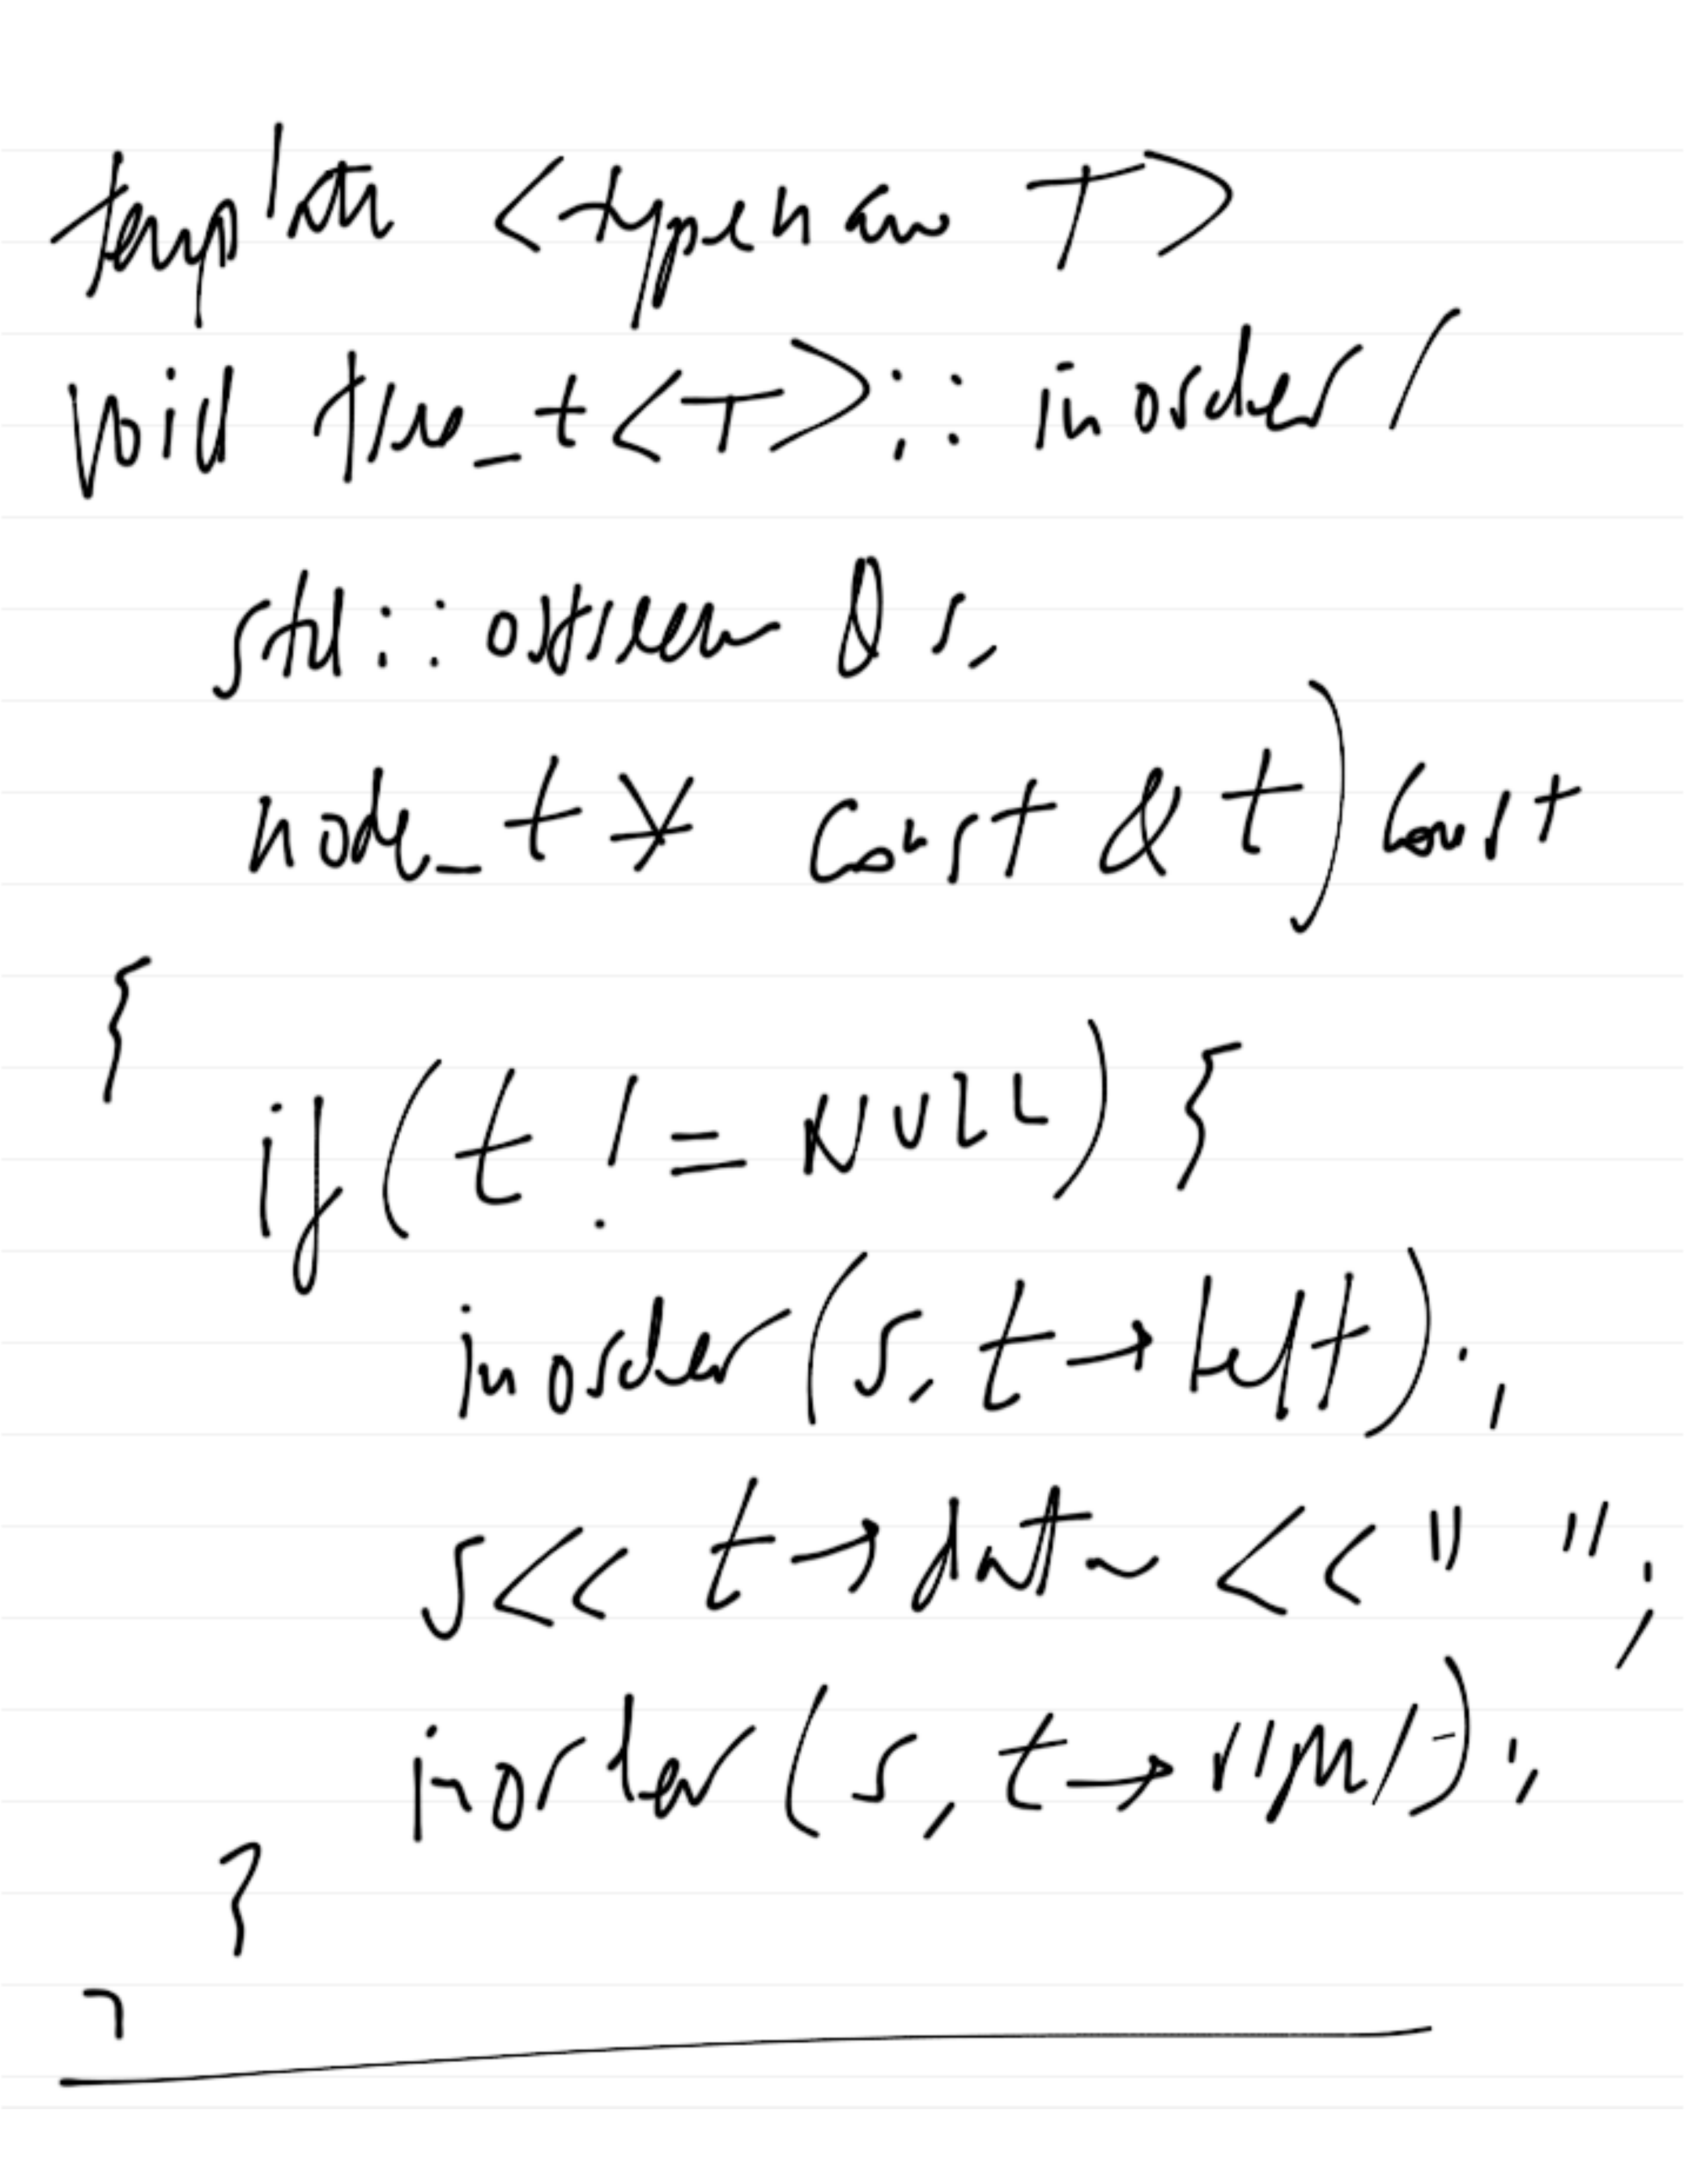 template <typename T>
void tree_t<T>:: inorder(
std::ostream & s,
node_t * const & t) const
{
if (t != NULL) {
inorder(s, t→left);
s<< t→data << " ";
inorder(s, t→right);
}
}